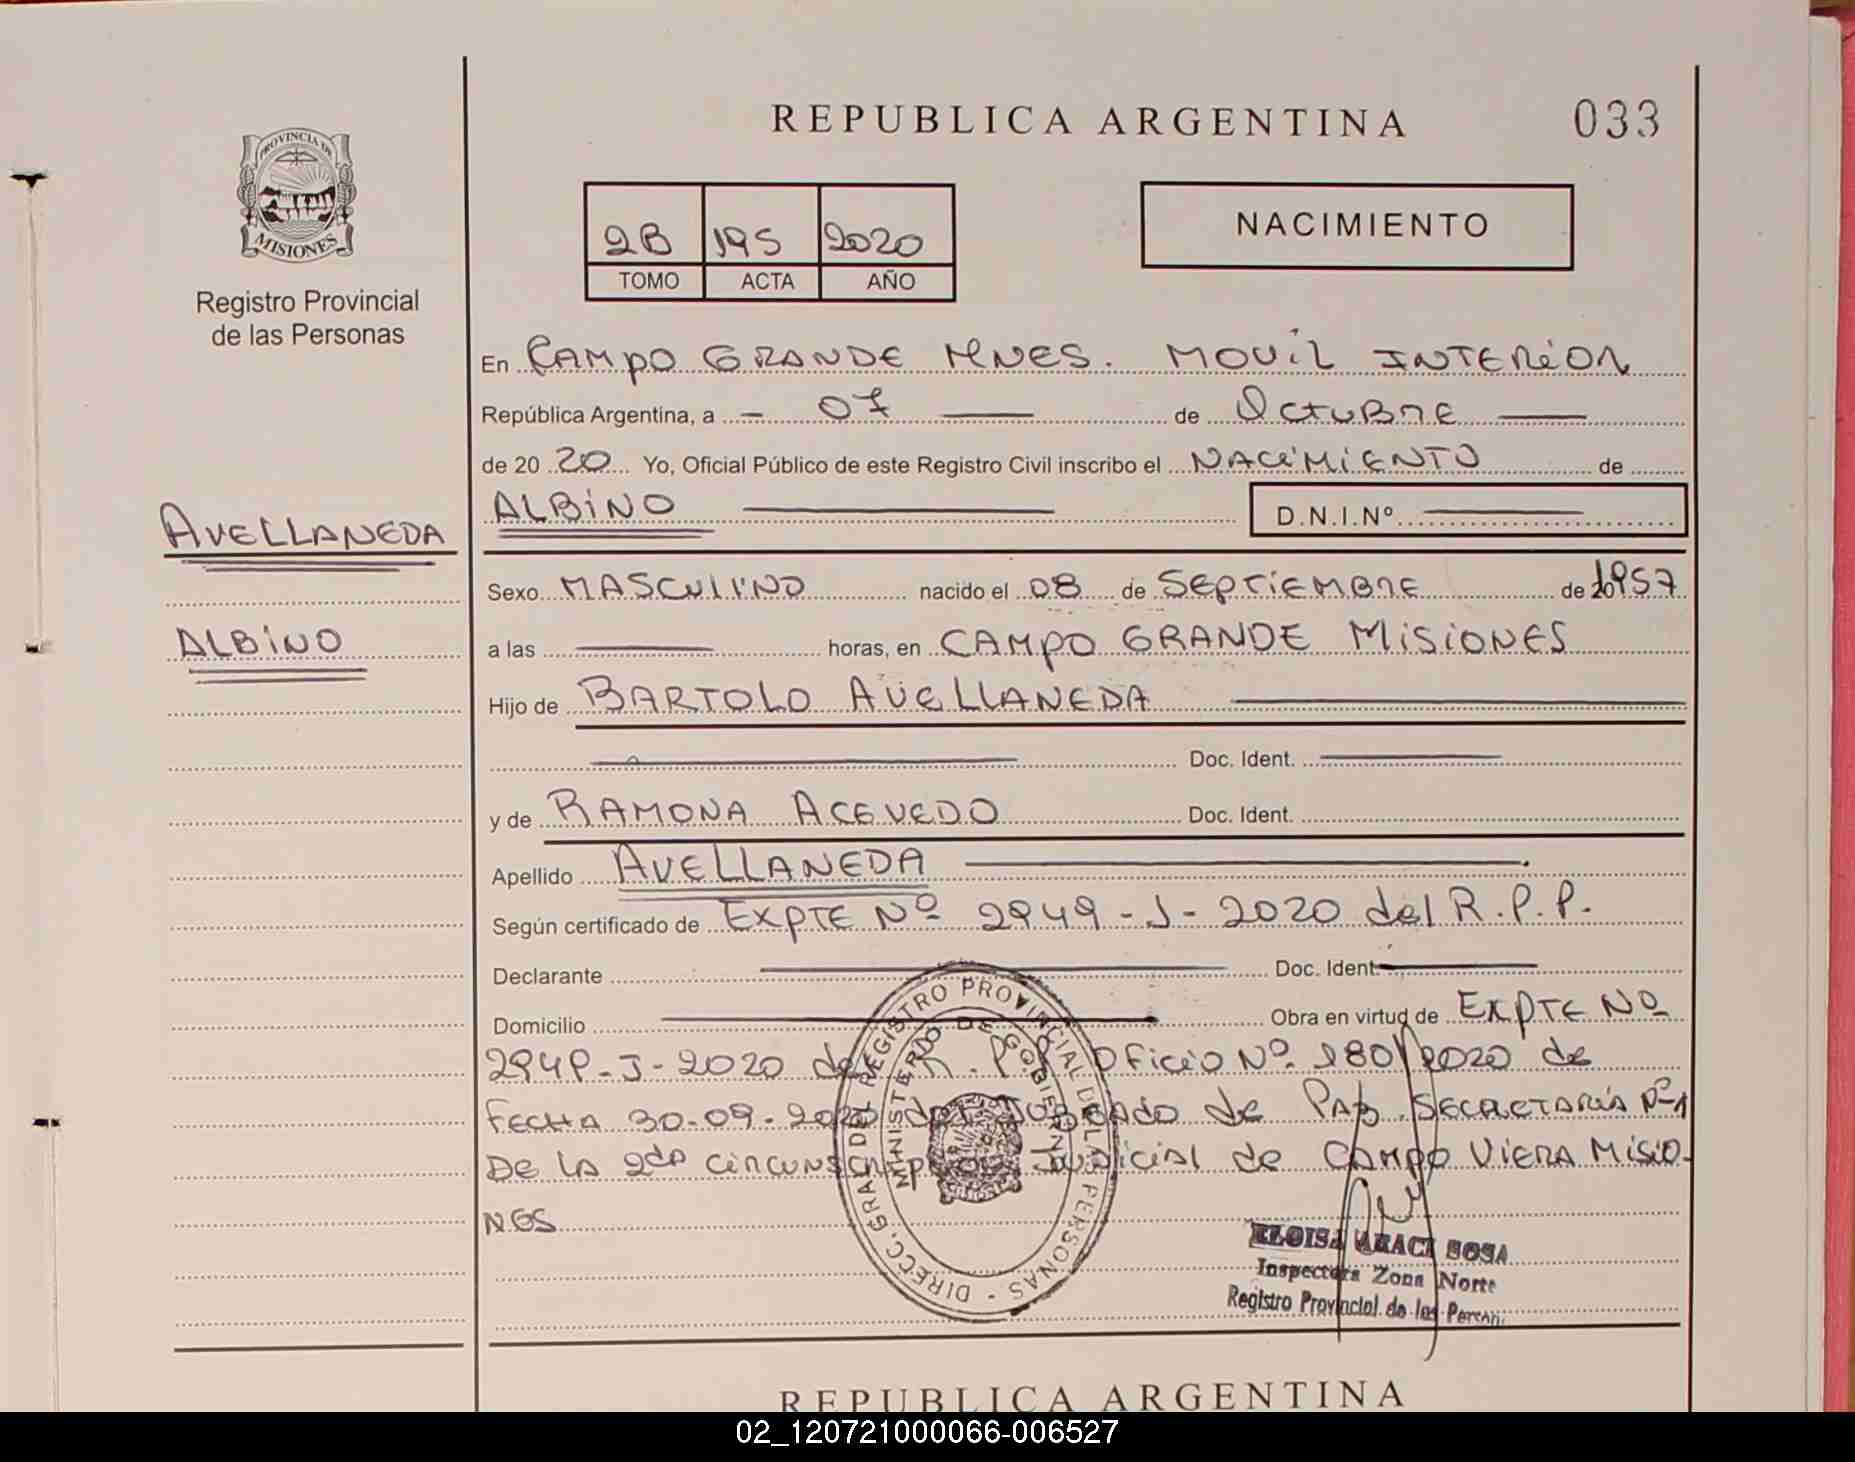 REPUBLICA ARGENTINA
033
PROVINCIA DE
MISIONES
Registro Provincial
de las Personas
2B 195 2020
TOMO ACTA AÑO
NACIMIENTO
En CAMPO GRANDE MNES. MOVIL INTERIOR
República Argentina, a 07 de Octubre
de 20 20 Yo, Oficial Público de este Registro Civil inscribo el NACIMIENTO de
ALBINO D.N.I.Nº
AVELLANEDA
ALBINO
Sexo MASCULINO nacido el 08 de SEPTIEMBRE de 1957
a las horas, en CAMPO GRANDE MISIONES
Hijo de BARTOLO AVELLANEDA
Doc. Ident.
y de RAMONA ACEVEDO Doc. Ident.
Apellido AVELLANEDA
Según certificado de EXPTE Nº 2949-J-2020 del R.P.P.
Declarante Doc. Ident.
Domicilio Obra en virtud de EXPTE Nº
2949-J-2020 del R.P.P. OFICIO Nº 180/2020 de
FECHA 30-09-2020 del JUZGADO de PAZ SECRETARÍA Nº1
De LA 2da CIRCUNSCRIPCION JUDICIAL de CAMPO VIERA MISIO-
NES
DIREC. GRAL DEL REGISTRO PROVINCIAL DE LAS PERSONAS
MINISTERIO DE GOBIERNO
ELOISA ARACI SOSA
Inspectora Zona Norte
Registro Provincial de las Person
REPUBLICA ARGENTINA
02_120721000066-006527